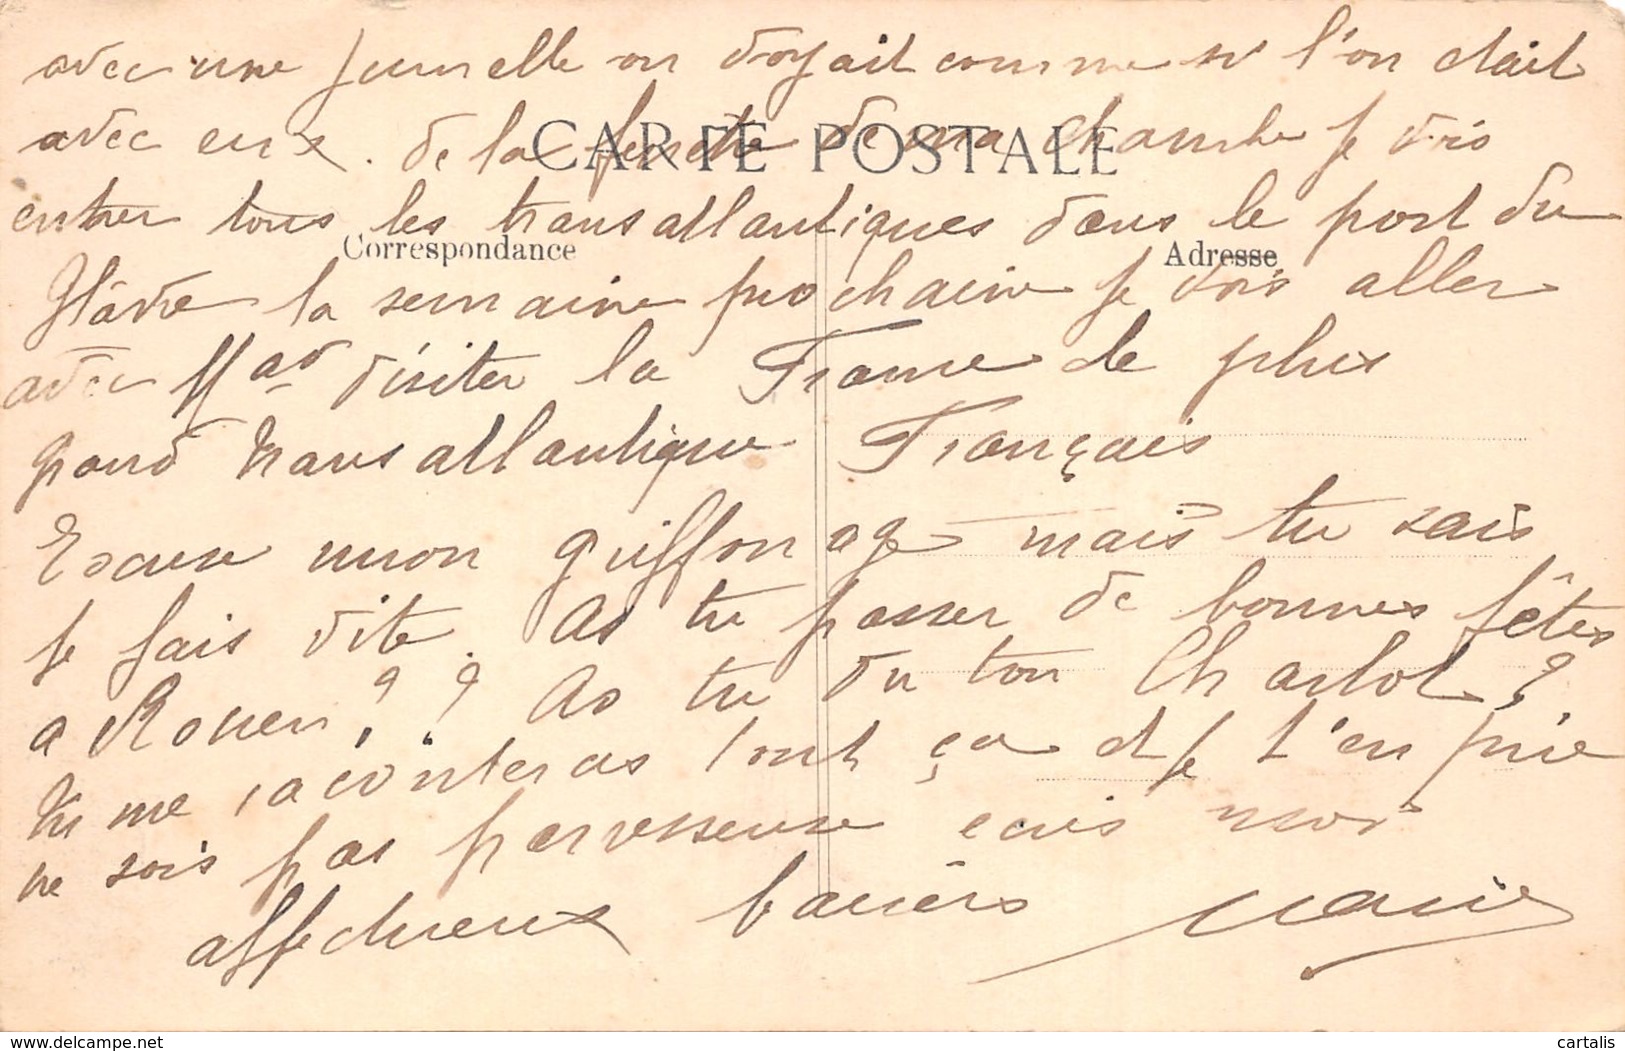 avec une jumelle on voyait comme si l'on etait
CARTE POSTALE
avec eux. de la fenetre de ma chambre je vois
entrer tous les transatlantiques dans le port du
Correspondance
Adresse
Hâvre la semaine prochaine je dois aller
avec visiter la France le plus
grand transatlantique Français
Excuse mon griffonage mais tu sais
je fais vite. As tu passer de bonnes fêtes
a Rouen ? ? As tu vu ton Charlot ?
tu me raconteras tout ça et je t'en prie
ne sois pas paresseuse ecris moi
affectueux baisers Marie
www.delcampe.net
cartalis